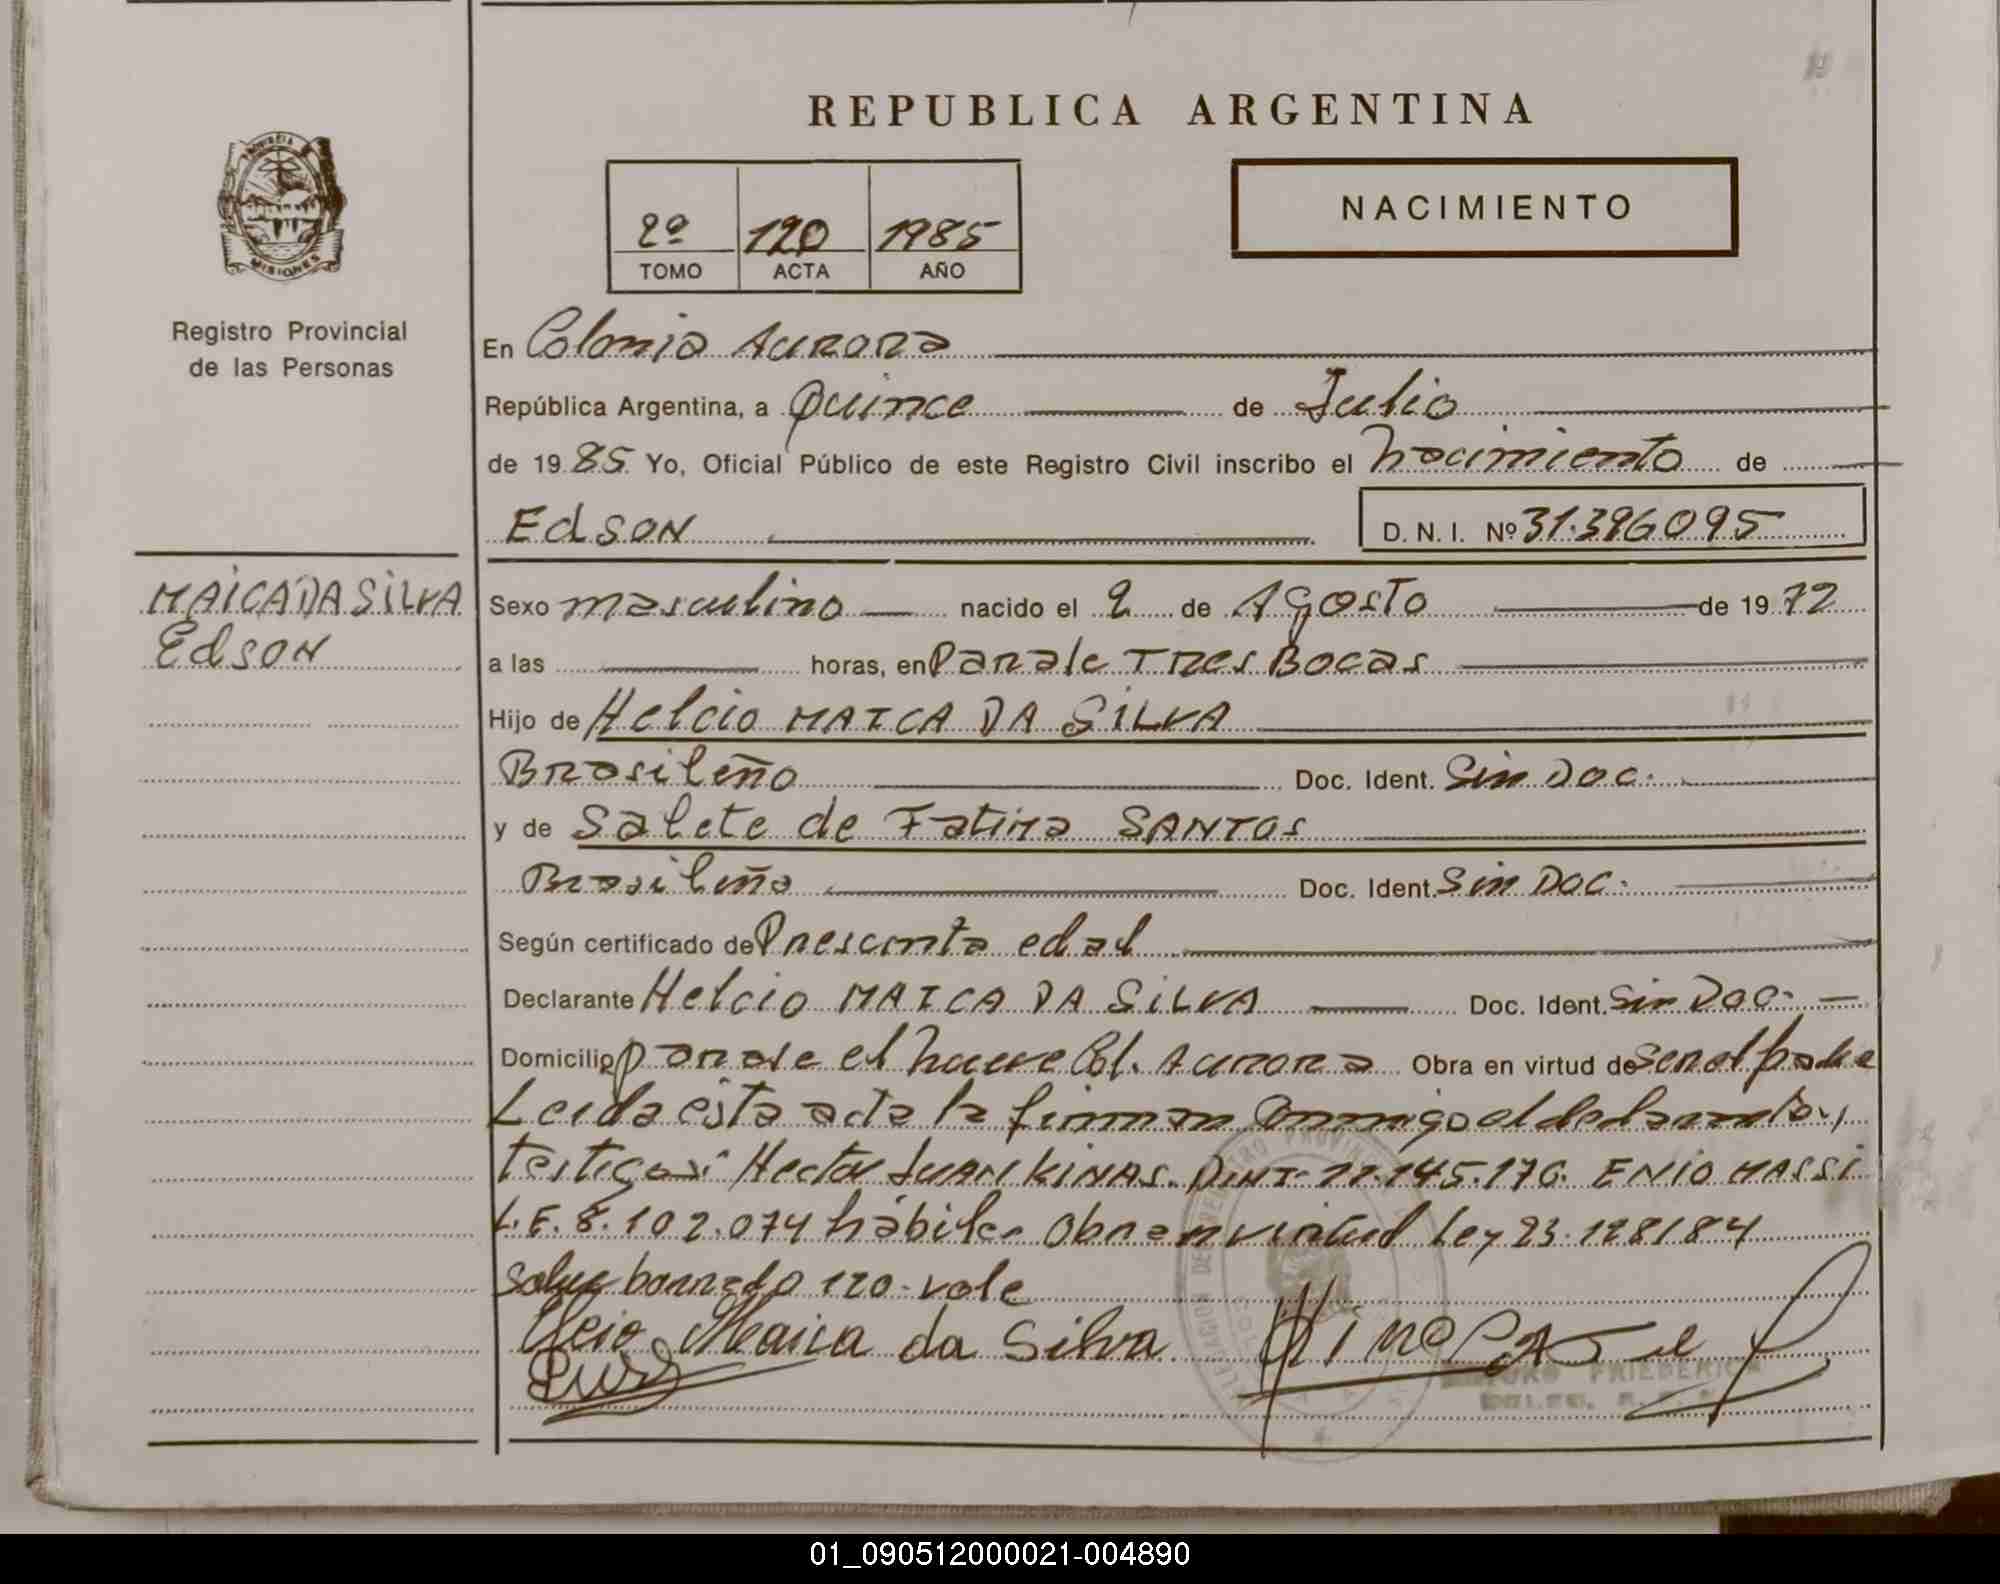 REPUBLICA ARGENTINA
PROVINCIA
MISIONES
Registro Provincial
de las Personas
2º 120 1985
TOMO ACTA AÑO
NACIMIENTO
En Colonia Aurora
República Argentina, a Quince de Julio
de 1985 Yo, Oficial Público de este Registro Civil inscribo el nacimiento de
Edson D. N. I. Nº 31.396095
MAICA DA SILVA
Edson
Sexo masculino nacido el 2 de Agosto de 1972
a las horas, en Paraje Tres Bocas
Hijo de Helcio MAICA DA SILVA
Brasileño Doc. Ident. Sin Doc.
y de Salete de Fatima SANTOS
Brasileña Doc. Ident. Sin Doc.
Según certificado de Presunta edad
Declarante Helcio MAICA DA SILVA Doc. Ident. Sin Doc.
Domicilio paraje el Col. Aurora Obra en virtud de Ser el padre
Leida esta acta la firman conmigo el declarante y
testigos: Hector JUAN KINAS. 11.145.176. ENIO MASSI
L.E. 8.102.074 hábiles Obra en virtud Ley 23.128/84
Sobre borrado 120-vale
Maica da Silva
FRIEDERICH
01_090512000021-004890